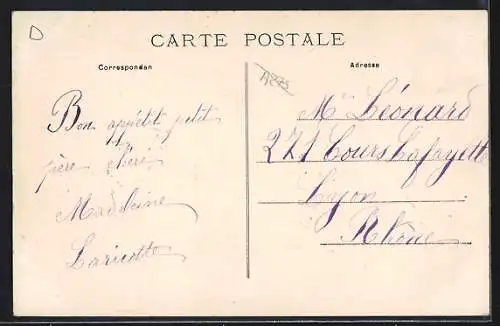 CARTE POSTALE
Correspondan
Adresse
Bon appétit petit
père chéri
Madeleine
Laricotte
Mr Léonard
271 Cours Lafayette
Lyon
Rhône